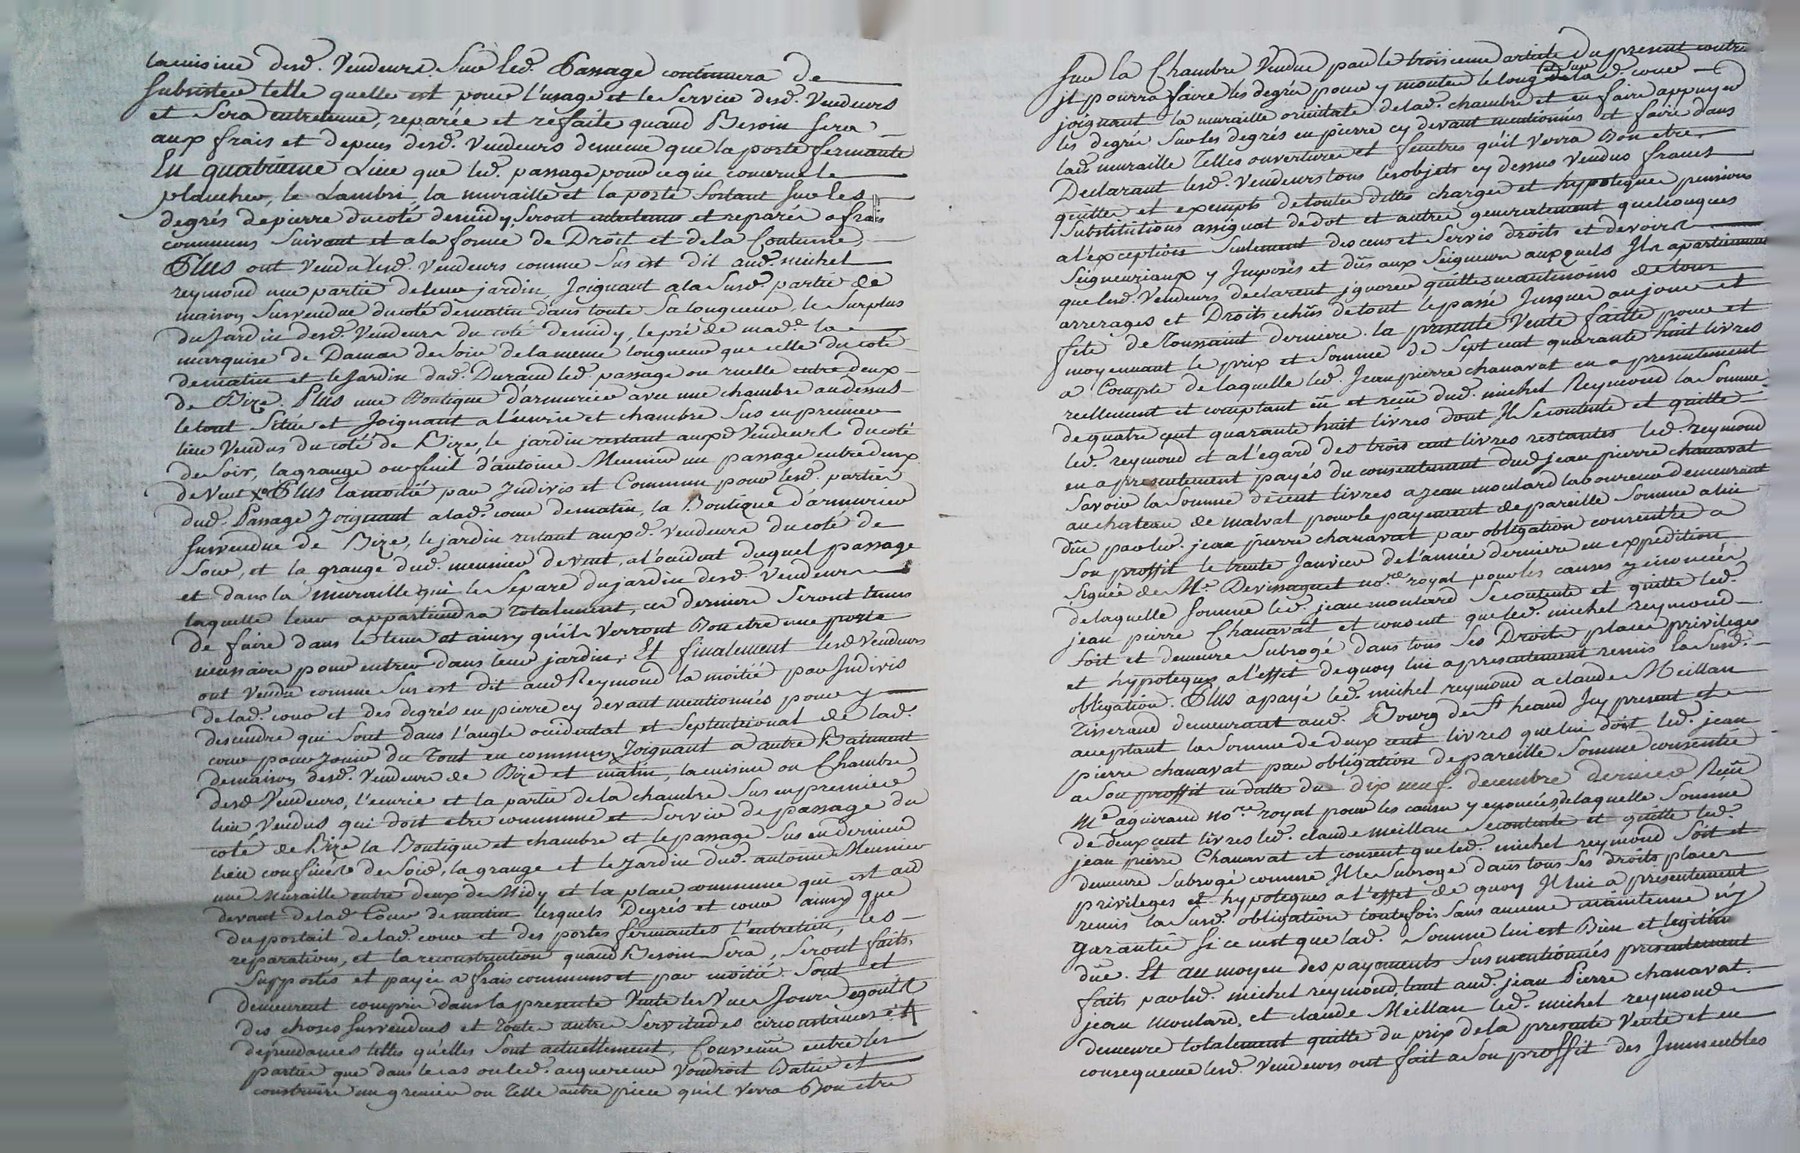 la cuisine desd. Vendeurs. Sur led. Passage continuera de
subsister telle quelle est pour l'usage et le Service desd. Vendeurs
et Sera entretenue, reparée et refaite quand Besoin sera
aux frais et depens desd. Vendeurs de meme que la porte fermante
En quatrieme Lieu que led. passage pour ce qui concerne le
plancher, le Lambri, la muraille et la porte Sortant sur les
degrés de pierre du coté de midy, seront entretenus et reparés a frais
communs Suivant et a la forme de Droit et de la Coutume,
Plus ont Vendu lesd. Vendeurs comme Sus est dit aud. michel
reymond une partie de leur jardin Joignant a la Susd. partie de
maison Survendue du coté de matin dans toute Sa longueur, le Surplus
du Jardin desd. Vendeurs du coté de midy, le pré de made. la
marquise de Damas de Soir de la meme longueur que celle du coté
de matin et le Jardin dud. Durand led. passage ou ruelle entre deux
de Bize. Plus une Boutique d'armurier avec une chambre au dessus
le tout Situé et Joignant a l'ecurie et chambre Sus en premier
lieu Vendus du coté de Bize, le jardin restant auxd. Vendeurs du coté
de Soir, la grange ou fenil d'antoine Meunier un passage entre deux
de Vent x Plus la moitié par Indivis et Commun pour lesd. parties
dud. Passage Joignant a lad. cour de matin, la Boutique d'armurier
Survendue de Bize, le jardin restant auxd. Vendeurs du coté de
Soir, et la grange dud. meunier de vent, a l'occident duquel passage
et dans la muraille qui le Separe du jardin desd. Vendeurs
laquelle leur appartiendra Totalement, ces derniers Seront tenus
de faire dans le tems et ainsy qu'ils Verront Bon etre une porte
necessaire pour entrer dans leur jardin, Et finalement lesd Vendeurs
ont Vendu comme Sus est dit aud Reymond la moitié par Indivis
de lad. cour et des degrés en pierre cy devant mentionnés pour y
descendre qui sont dans l'angle occidental et Septentrional de lad.
cour pour Jouir du Tout en commun Joignant a autre Batiment
de maison desd. Vendeurs de Bize et matin, la cuisine ou Chambre
desd Vendeurs, l'ecurie et la partie de la chambre Sus en premier
lieu Vendus qui doit etre commune et Servir de passage du
coté de Bize la Boutique et chambre et le passage Sus en dernier
lieu confinés de Soir, la grange et le Jardin dud. antoine Meunier
une Muraille entre deux de Midy et la place commune qui est au
devant de lad Cour de matin lesquels Degrés et cour ainsy que
du portail de lad. cour et des portes fermantes l'entretien, les
reparations, et la reconstruction quand Besoin Sera, Seront faits,
Supportés et payés a frais communs et par moitié. Sont et
demeurent compris dans la presente Vente les Vues Jours egouts
des choses Survendues et toute autre Servitudes circonstances et
dependances telles qu'elles Sont actuellement, Convenu entre les
parties que dans le cas ou led. acquereur Voudroit Batir et
construire un grenier ou Telle autre piece qu'il Verra Bon etre
Sur la Chambre Vendue par le troisieme article du present contrat
il pourra faire des degrés pour y monter le long et sur lad. cour
joignant la muraille orientale de lad. chambre et en faire appuyer
les degrés Sur les degrés en pierre cy devant mentionnés et faire dans
lad. muraille Telles ouvertures et fenetres qu'il verra Bon etre,
Declarant lesd. Vendeurs tous les objets cy dessus Vendus francs
quittes et exempts de toutes dettes charges et hypoteques pensions
Substitutions assignat de dot et autres generalement quelconques
a l'exception Seulement des cens et Servis droits et devoirs
Seigneuriaux y Imposés et dûs aux Seigneurs auxquels Ils apartiennent
que lesd. Vendeurs declarent ignorer quittes neantmoins de tous
arrerages et Droits echûs de tout le passé Jusques au jour et
fete de Toussaint derniere. la presente Vente faitte pour et
moyennant le prix et Somme de Sept cent quarante huit livres
a Compte de laquelle led. Jean pierre chanavat en a presentement
reellement et comptant eu et reçu dud. michel Reymond la Somme
de quatre cent quarante huit livres dont Il Se contente et quitte
led. reymond et a l'egard des trois cent livres restantes led. reymond
en a presentement payés du consentement dud jean pierre chanavat
Savoir la Somme de cent livres a jean moulard laboureur demeurant
au chateau de malval pour le payement de pareille Somme a lui
dûe par led. jean pierre chanavat par obligation consentie a
Son proffit le trente Janvier de l'année derniere en expedition
Signée de Me. Devissaguet nore. royal pour les causes y enoncées
de laquelle Somme led. jean moulard Se contente et quitte led.
jean pierre Chanavat et consent que led. michel reymond
Soit et demeure Subrogé dans tous Ses Droits places privileges
et hypoteques a l'effet de quoy lui a presentement remis la Susd.
obligation. Plus a payé led. michel reymond a claude Meillan
Tisserand demeurant aud. Bourg de St heand Icy present et
acceptant la Somme de deux cent livres que lui doit led. jean
pierre chanavat par obligation de pareille Somme consentie
a Son proffit en datte du dix neuf decembre dernier Reçue
Me aguirand nore. royal pour les causes y enoncées de laquelle Somme
de deux cent livres led. claude meillan Se contente et quitte led.
jean pierre Chanavat et consent que led. michel reymond Soit et
demeure Subrogé comme Il le Subroge dans tous Ses droits places
privileges et hypoteques a l'effet de quoy Il lui a presentement
remis la Susd. obligation toutefois Sans aucune maintenue ny
garantie Si ce n'est que lad. Somme lui est Bien et legitime
dûe. Et au moyen des payements Sus mentionnés presentement
faits par led. michel reymond tant aud. jean Pierre chanavat.
jean Moulard, et claude Meillan led. michel reymond
demeure totalement quitte du prix de la presente Vente et en
consequence lesd. Vendeurs ont fait a Son proffit des Immeubles